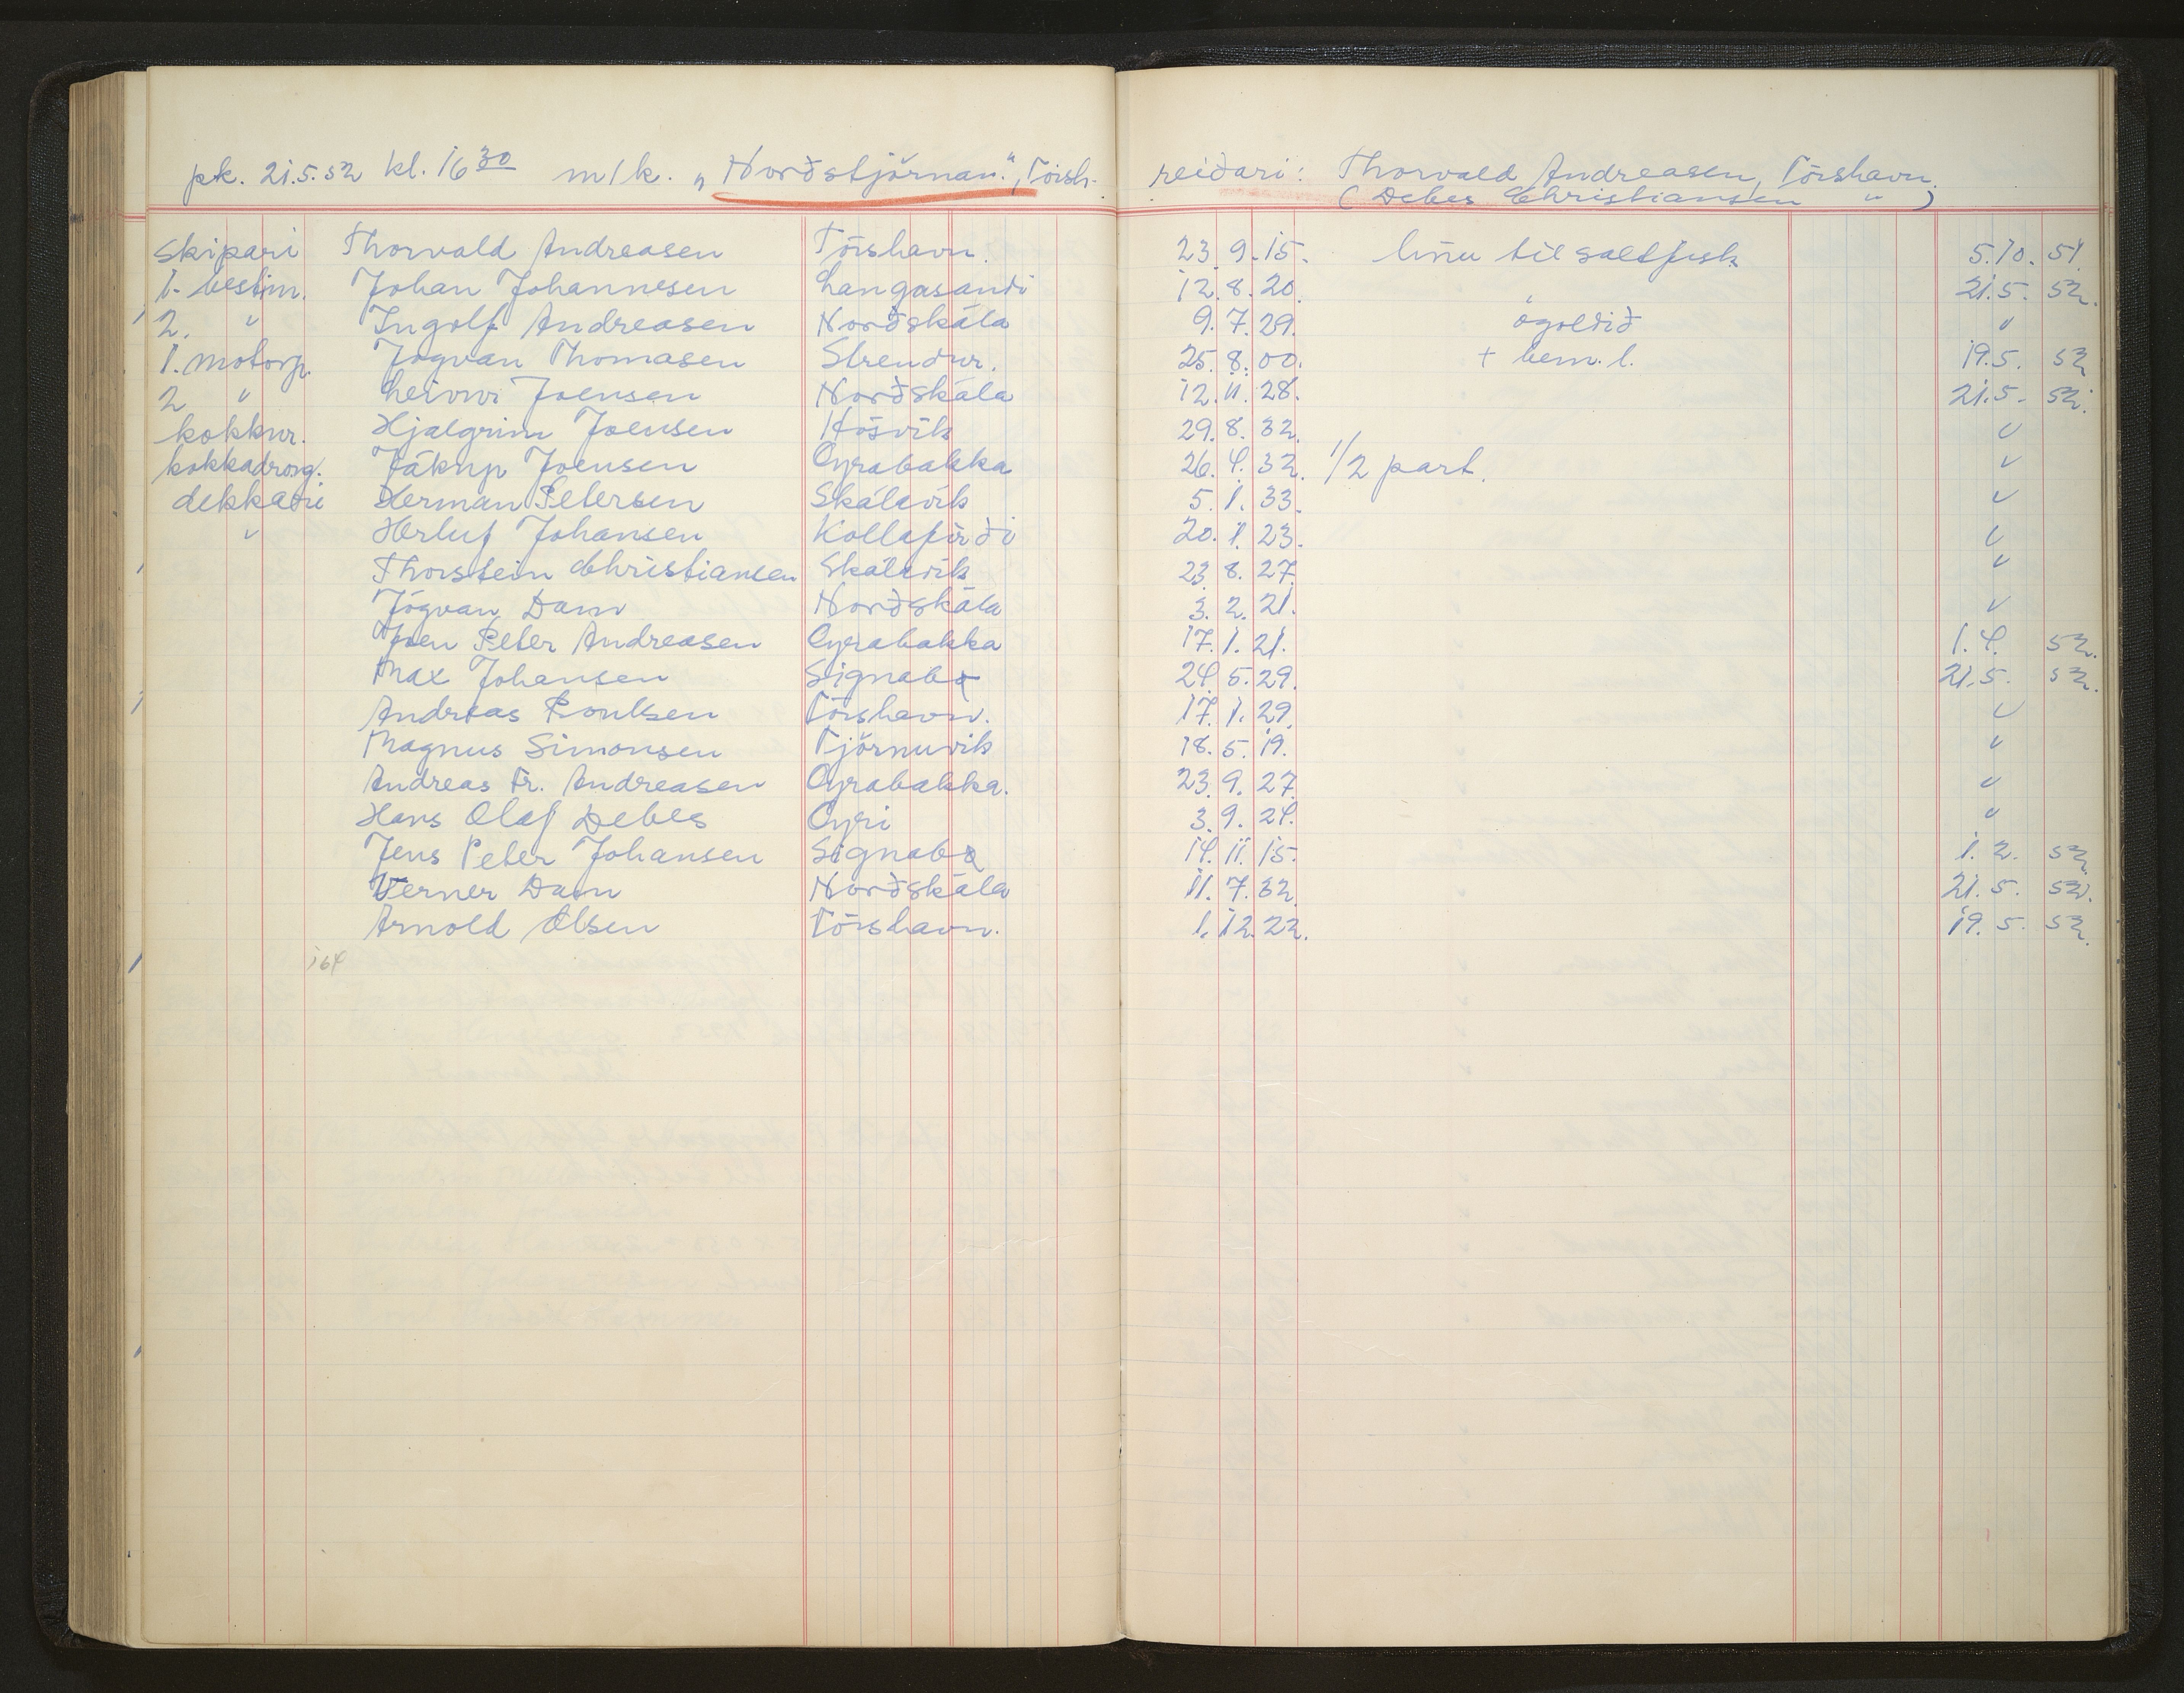 pk. 21.5.52 kl. 16 30 m/k. „Norðstjörnan", Tórsh. reiðari: Thorvald Andreasen, Tórshavn.
(Debes Christiansen " )
Skipari Thorvald Andreasen Tórshavn. 23.9.15. línu til saltfisk 5.10.51.
1. bestm. Johan Johannesen Langasandi 12.8.20. 21.5.52.
2. " Ingolf Andreasen Norðskála 9.7.29. ógoldið "
1. motorp. Jógvan Thomasen Strendur. 25.8.00. + bem. l. 19.5.52
2 " Leivur Joensen Norðskála 12.11.28. 21.5.52.
kokkur. Hjalgrim Joensen Hósvík 29.8.32. "
kokkadrong. Jákup Joensen Oyrabakka 26.4.32. 1/2 part. "
dekkari Herman Petersen Skálavík 5.1.33. "
" Herluf Johansen Kollafirði 20.1.23. "
Thorstein Christiansen Skálavík 23.8.27. "
Jógvan Dam Norðskála 3.2.21. "
Joen Peter Andreasen Oyrabakka 17.1.21. 1.4.52.
Max Johansen Signabø 24.5.29. 21.5.52.
Andreas Poulsen Tórshavn. 17.1.29. "
Magnus Simonsen Tjörnuvík 18.5.19. "
Andreas Fr. Andreasen Oyrabakka. 23.9.27. "
Hans Olaf Debes Oyri 3.9.24. "
Jens Peter Johansen Signabø 14.11.15. 1.2.52.
Verner Dam Norðskála 11.7.32. 21.5.52.
Arnold Olsen Tórshavn. 1.12.22. 19.5.52.
164